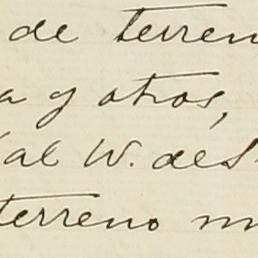 de terren
a y otros,
al W. del
terreno m